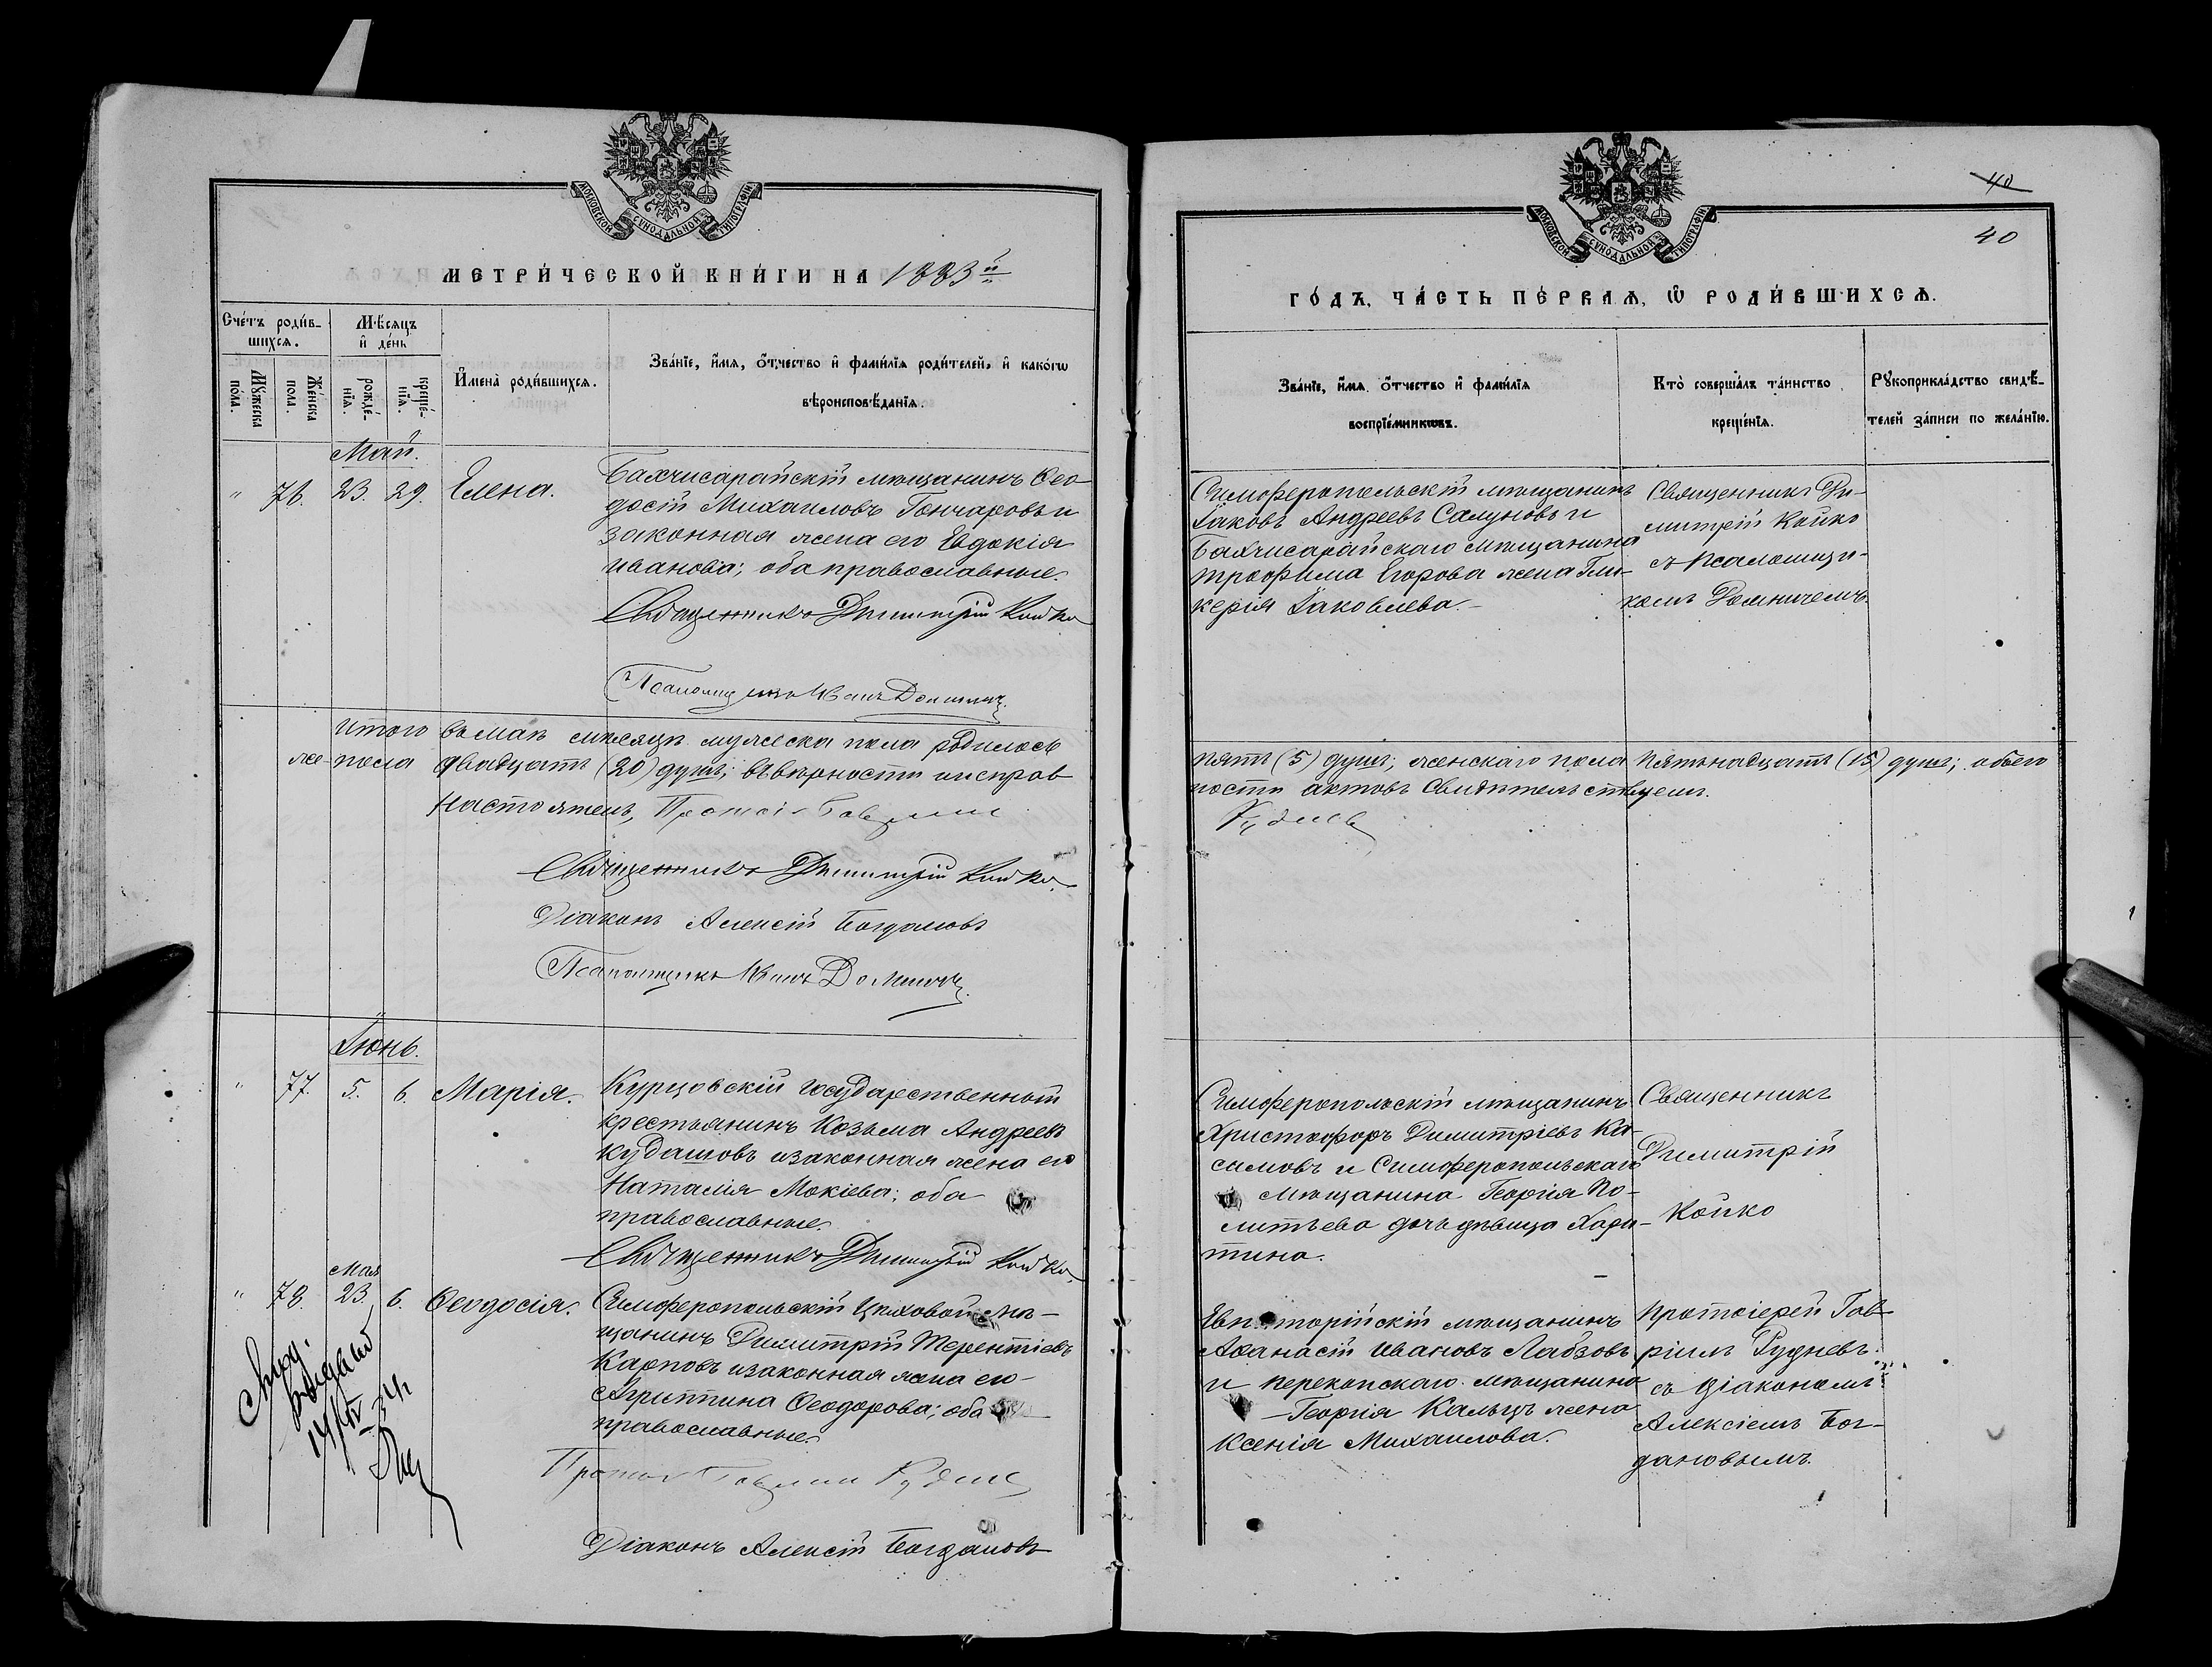 МОСКОВСКОЙ СѴНОДАЛЬНОЙ ТИПОГРАФІИ
МЕТРИ́ЧЕСКОЙ КНИ́ГИ НА 1883й
Сче́тъ роди́в-
шихсѧ.
М́ѣсѧцъ
и҆ де́нь
Мꙋ́жеска
по́ла.
Же́нска
пола.
рожде́-
нїѧ.
креще́-
нїѧ.
И҆мена̀ роди́вшихсѧ.
Зва́нїе, и҆́мѧ, ѻ҆́тчество и҆ фами́лїѧ роди́телей, и҆ како́гѡ
вѣроисповѣ́данїѧ.
Май.
" 76. 23. 29. Елена.
Бахчисарайскій мѣщанинъ Ѳео-
досій Михаиловъ Гончаровъ и
законная жена его Евдокія
Иванова; оба православные.
Священникъ Димитрій Койко
Псаломщикъ Иванъ Доминич
Итого въ маѣ мѣсяцѣ мужеска пола родилось
же пола двадцать (20) душъ; въ вѣрности и исправ
Настоятель, Протоі Гавріилъ
Священникъ Димитрій Койко
Діаконъ Алексій Богдановъ
Псаломщикъ Иванъ Доминич
Іюнь.
" 77. 5. 6. Марія.
Курцовскій государственный
крестьянинъ Козьма Андреевъ
Кудашовъ и законная жена его
Наталія Мокіева; оба
православные.
Священникъ Димитрій Койко
Мая
" 78. 23. 6. Ѳеодосія.
Симферопольскій цеховой мѣ-
щанинъ Димитрій Терентіевъ
Карповъ и законная жена его
Агриппина Ѳеодорова; оба
православные.
Протоі Гавріилъ Рудне
Діаконъ Алексій Богдановъ
14/IV
МОСКОВСКОЙ СѴНОДАЛЬНОЙ ТИПОГРАФІИ
40
40
ГО́ДЪ, ЧА́СТЬ ПЕ́РВАѦ, Ѡ҆ РОДИ́ВШИХСѦ.
Зва́нїе, и҆́мѧ ѻ҆́тчество и҆ фами́лїѧ
воспрїе́мникѡвъ.
Кто̀ соверша́лъ та́инство
креще́нїѧ.
Рꙋкоприкла́дство свидѣ́-
телей за́писи по жела́нїю.
Симферопольскій мѣщанинъ
Іаковъ Андреевъ Салуновъ и
Бахчисарайскаго мѣщанина
Трофима Егорова жена Гли-
керія Іаковлева.
Священникъ Ди-
митрій Койко
съ псаломщи-
комъ Доминичемъ.
пять (5) душъ; женскаго пола пятьнадцать (15) душъ; обоего
ности актовъ свидѣтельствуемъ.
Руднев
Симферопольскій мѣщанинъ
Христофоръ Димитріевъ Ка-
симовъ и Симферопольскаго
мѣщанина Георгія По-
литьева дочь дѣвица Хари-
тина.
Священникъ
Димитрій
Койко
Евпаторійскій мѣщанинъ
Аѳанасій Ивановъ Лабзовъ
и перекопскаго мѣщанина
Георгія Кальцъ жена
Ксенія Михаилова.
Протоіерей Гав-
ріилъ Рудневъ
съ діакономъ
Алексіемъ Бог-
дановымъ.